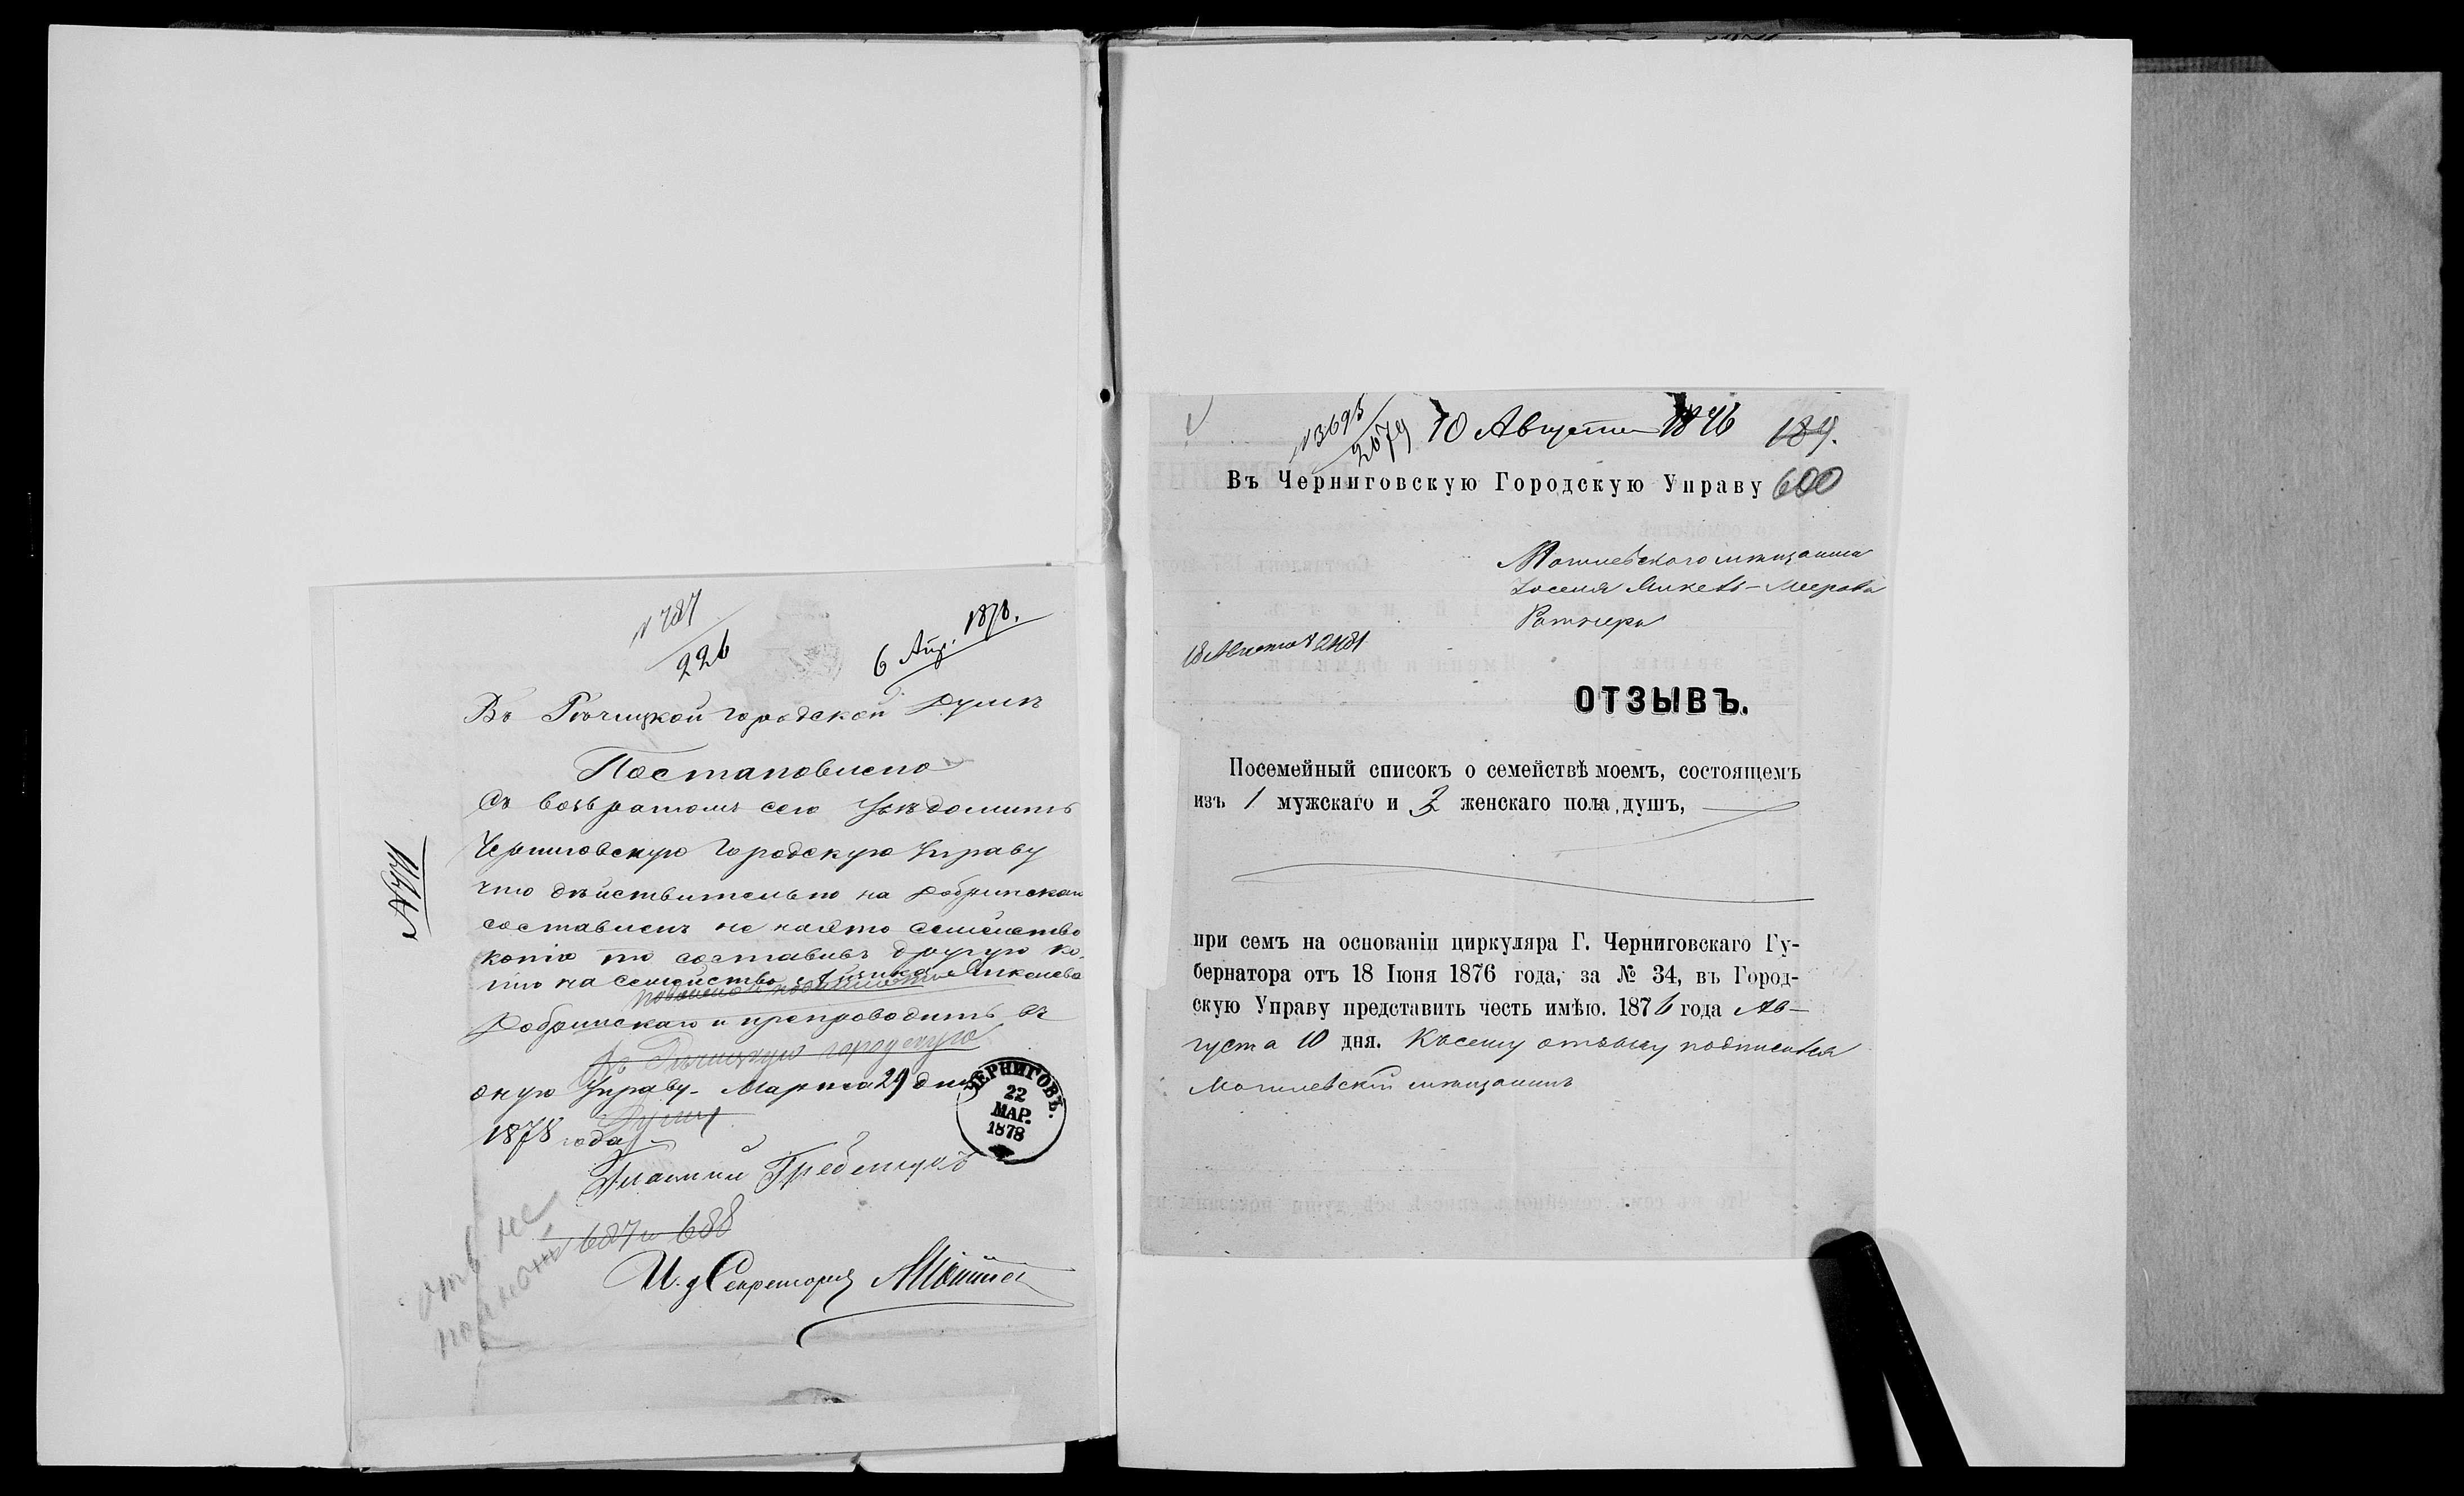 № 787
226
6 Апр. 1878.
Въ Рѣчицкой городской Думѣ
Постановлено
Съ возвратомъ сего Увѣдомить
Черниговскую городскую Управу
что дѣйствительно на Добринскаго
составленъ не на это семейство
копію то составивъ другую ко-
пію на семейство
Добринскаго и препроводить въ
въ Рѣчицкую городскую
оную Управу. Марта 29 дня
Думу
1878 года
Гласный Гребенщ
687 и 688
И. д Секретаря
ЧЕРНИГОВЪ.
22
МАР.
1878
№ 3693
2679
10 Августа 1876
189.
Въ Черниговскую Городскую Управу
600
Могилевскаго мѣщанина
Іоселя Янкель-Меерова
Ратнера
18 Августа 2481
ОТЗЫВЪ.
Посемейный списокъ о семействѣ моемъ, состоящемъ
изъ 1 мужскаго и женскаго пола душъ,
при семъ на основаніи циркуляра Г. Черниговскаго Гу-
бернатора отъ 18 Іюня 1876 года, за № 34, въ Город-
скую Управу представить честь имѣю. 1876 года Ав-
густа 10 дня. Къ сему отзыву подписался
Могилевскій мѣщанинъ